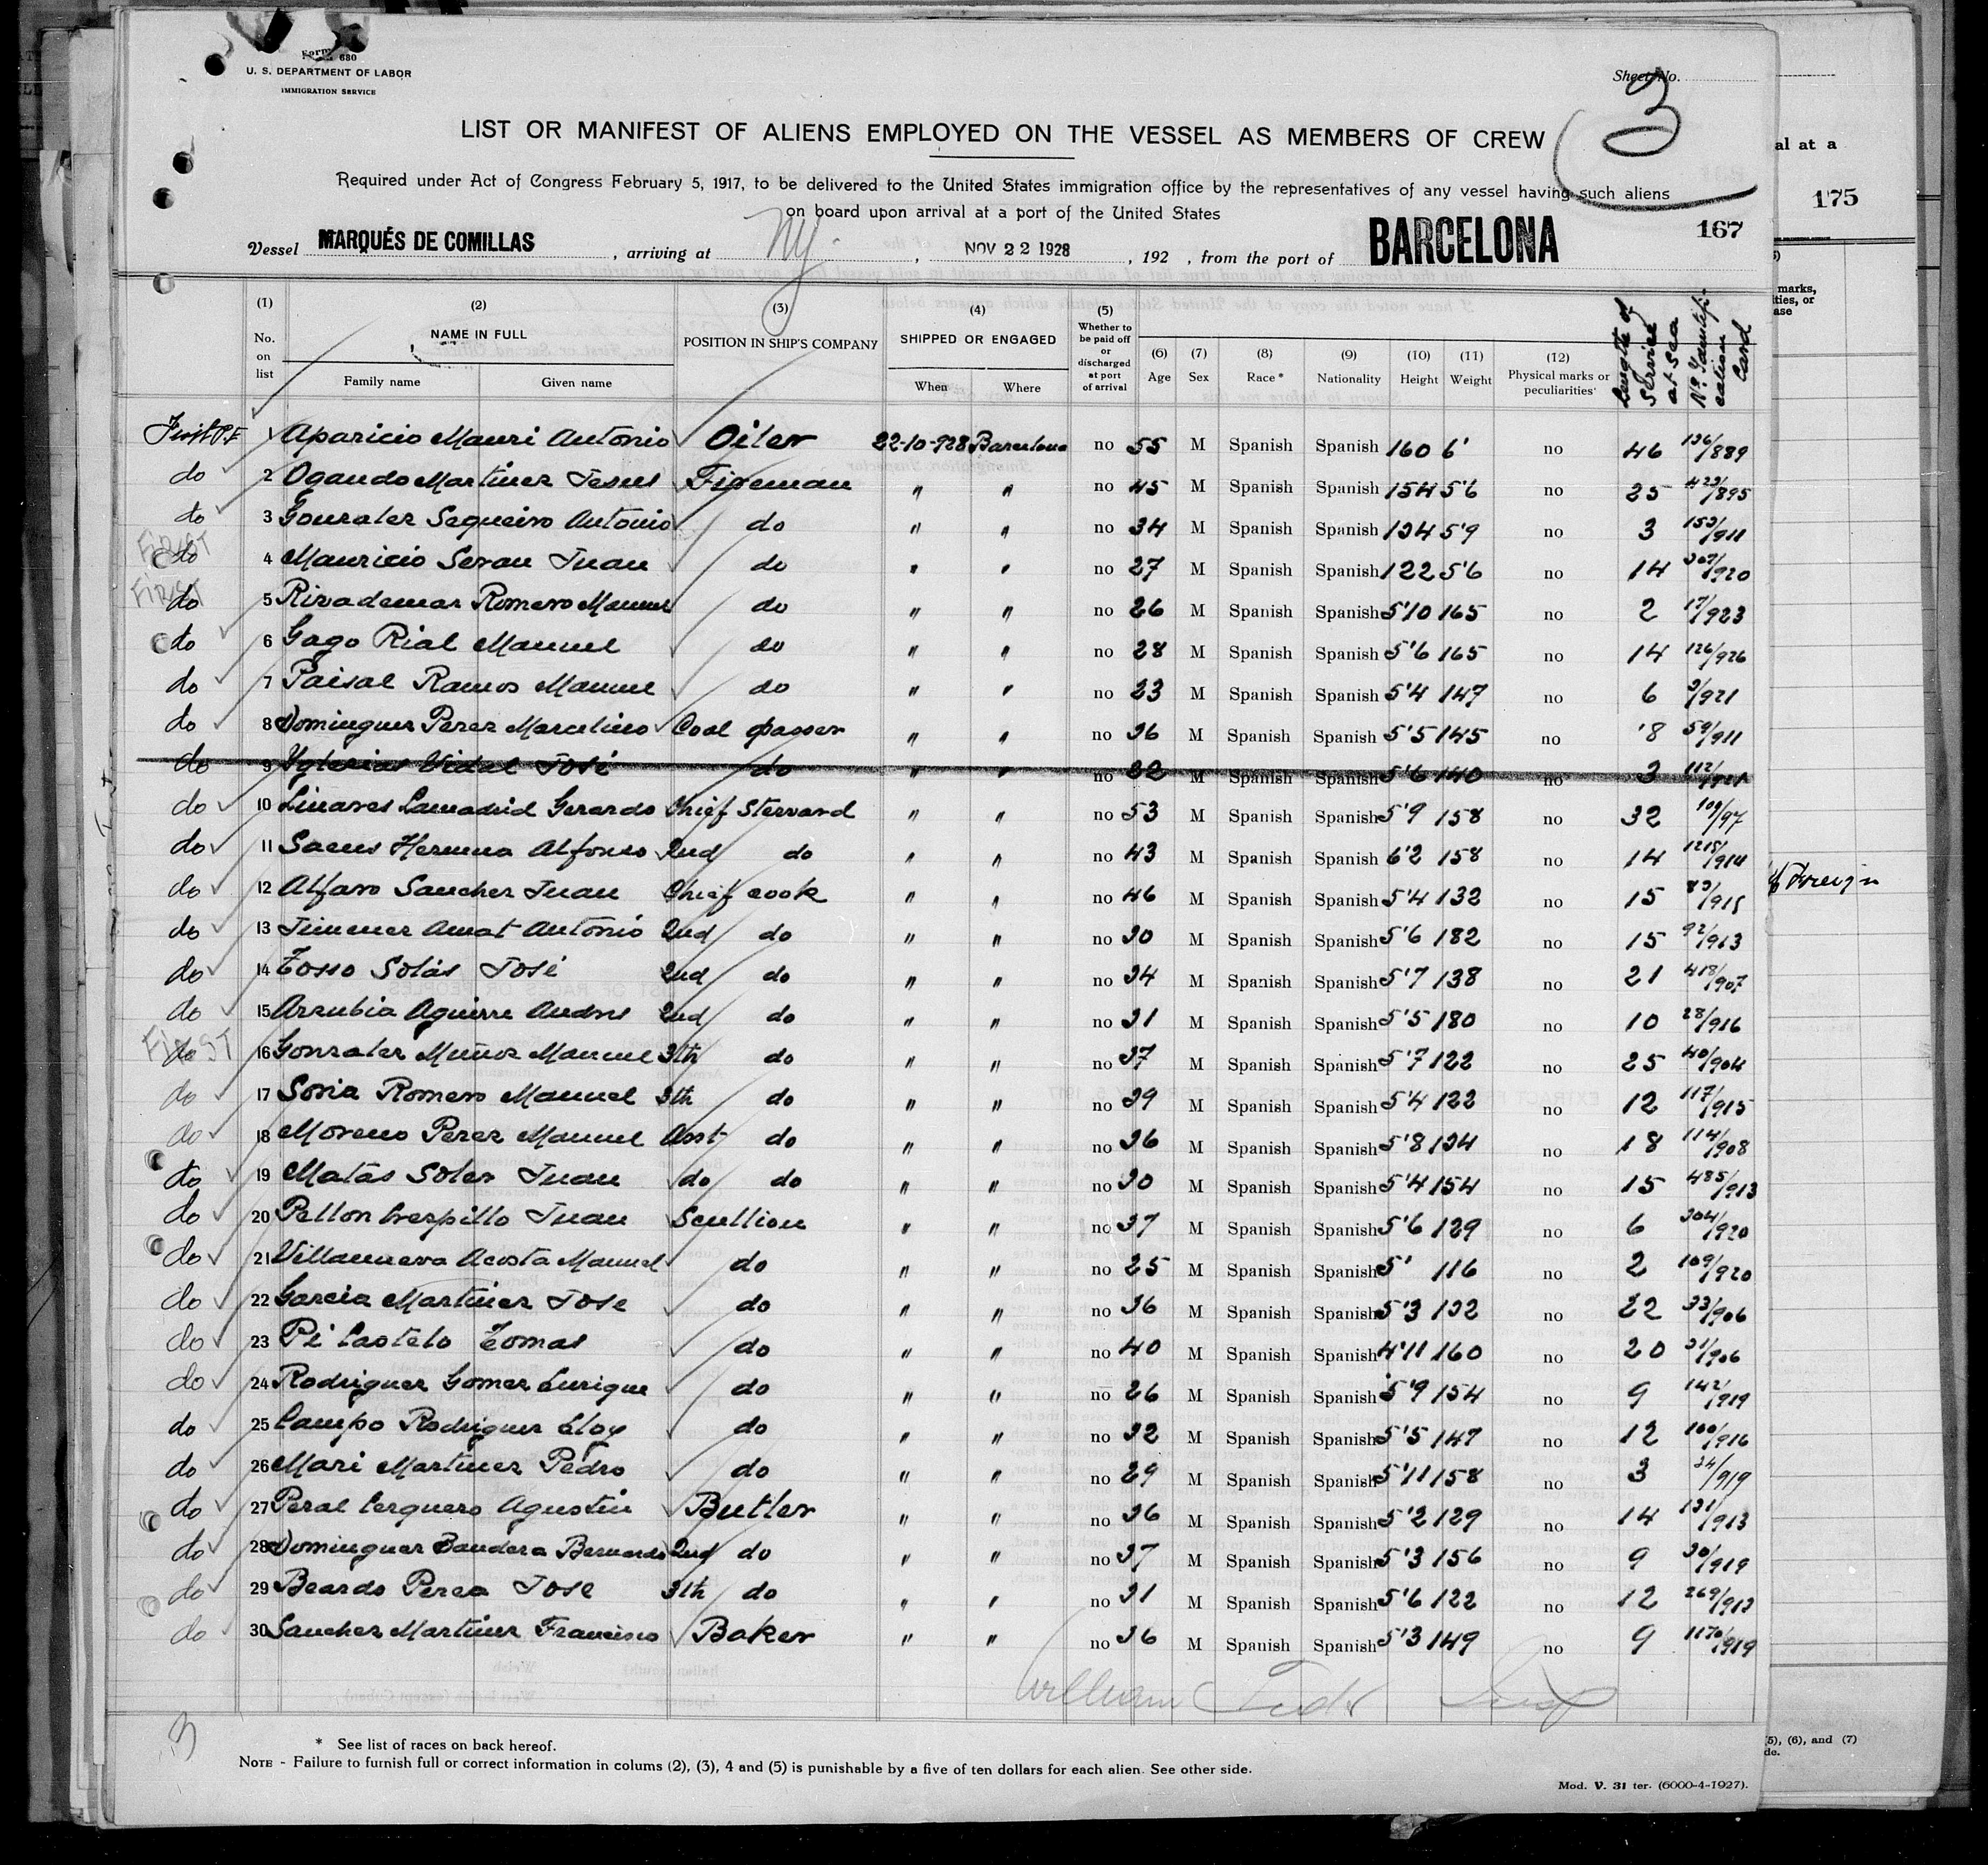 Form 680
U. S. DEPARTMENT OF LABOR
IMMIGRATION SERVICE
Sheet No. 3
LIST OR MANIFEST OF ALIENS EMPLOYED ON THE VESSEL AS MEMBERS OF CREW
al at a
Required under Act of Congress February 5, 1917, to be delivered to the United States immigration office by the representatives of any vessel having such aliens
on board upon arrival at a port of the United States
175
167
Vessel MARQUÉS DE COMILLAS , arriving at NY. , NOV 22 1928 , 192 , from the port of BARCELONA
(1) No. on list
(2) NAME IN FULL Family name Given name
(3) POSITION IN SHIP'S COMPANY
(4) SHIPPED OR ENGAGED When Where
(5) Whether to be paid off or discharged at port of arrival
(6) Age (7) Sex (8) Race* (9) Nationality (10) Height (11) Weight (12) Physical marks or peculiarities
Length of service at sea
Nº Ydentification Card
marks,
ties, or
ase
First P.E 1 Aparicio Mauri Antonio Oiler 22-10-928 Barcelona no 55 M Spanish Spanish 160 6' no 46 136/889
do 2 Ogando Martinez Jesus Fireman " " no 45 M Spanish Spanish 154 5'6 no 25 423/895
do 3 Gonzalez Sequeiro Antonio do " " no 34 M Spanish Spanish 134 5'9 no 3 153/911
FIRST do 4 Mauricio Servau Juan do " " no 27 M Spanish Spanish 122 5'6 no 14 367/920
FIRST do 5 Rivademar Romero Manuel do " " no 26 M Spanish Spanish 5'10 165 no 2 17/923
do 6 Gago Rial Manuel do " " no 28 M Spanish Spanish 5'6 165 no 14 126/926
do 7 Paisal Ramos Manuel do " " no 23 M Spanish Spanish 5'4 147 no 6 2/921
do 8 Dominguez Perez Marcelino Coal passer " " no 36 M Spanish Spanish 5'5 145 no 8 59/911
do 9 Yglesias Vidal José do " " no 22 M Spanish Spanish 5'6 140 no 3 112/921
do 10 Linares Lamadrid Gerardo Chief Steward " " no 53 M Spanish Spanish 5'9 158 no 32 109/97
do 11 Saens Hermua Alfonso 2nd do " " no 43 M Spanish Spanish 6'2 158 no 14 1215/914
do 12 Alfaro Sanchez Juan Chief cook " " no 46 M Spanish Spanish 5'4 132 no 15 83/915
do 13 Jimenez Amat Antonio 2nd do " " no 30 M Spanish Spanish 5'6 182 no 15 92/913
do 14 Tosso Solás José 2nd do " " no 34 M Spanish Spanish 5'7 138 no 21 418/907
do 15 Arzubia Aguirre Andres 2nd do " " no 31 M Spanish Spanish 5'5 180 no 10 28/916
FIRST do 16 Gonzalez Muñoz Manuel 3th do " " no 37 M Spanish Spanish 5'7 122 no 25 40/904
do 17 Soria Romero Manuel 3th do " " no 39 M Spanish Spanish 5'4 122 no 12 117/915
do 18 Moreno Perez Manuel Asst do " " no 36 M Spanish Spanish 5'8 134 no 18 114/908
do 19 Matas Soler Juan do do " " no 30 M Spanish Spanish 5'4 154 no 15 485/913
do 20 Pellon Crespillo Juan Scullion " " no 37 M Spanish Spanish 5'6 129 no 6 304/920
do 21 Villanueva Acosta Manuel do " " no 25 M Spanish Spanish 5' 116 no 2 109/920
do 22 Garcia Martinez Jose do " " no 36 M Spanish Spanish 5'3 132 no 22 33/906
do 23 Pi Castelo Tomas do " " no 40 M Spanish Spanish 4'11 160 no 20 31/906
do 24 Rodriguez Gomez Enrique do " " no 26 M Spanish Spanish 5'9 154 no 9 142/919
do 25 Campo Rodriguez Eloy do " " no 32 M Spanish Spanish 5'5 147 no 12 100/916
do 26 Mari Martinez Pedro do " " no 29 M Spanish Spanish 5'11 158 no 3 34/919
do 27 Peral Cerquero Agustin Butler " " no 36 M Spanish Spanish 5'2 129 no 14 131/913
do 28 Dominguez Bandera Bernardo 2nd do " " no 37 M Spanish Spanish 5'3 156 no 9 30/919
do 29 Beardo Perea Jose 3th do " " no 31 M Spanish Spanish 5'6 122 no 12 269/913
do 30 Sanchez Martinez Francisco Baker " " no 36 M Spanish Spanish 5'3 149 no 9 1170/919
of Foreign
William
3
* See list of races on back hereof.
NOTE - Failure to furnish full or correct information in colums (2), (3), 4 and (5) is punishable by a five of ten dollars for each alien. See other side.
Mod. V. 31 ter. (6000-4-1927).
(5), (6), and (7)
de.